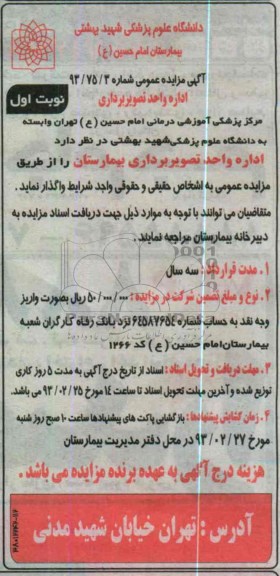 دانشگاه علوم پزشکی شهید بهشتی
بیمارستان امام حسین (ع)
آگهی مزایده عمومی شماره ۹۳/۷۵/۳
اداره واحد تصویربرداری
نوبت اول
مرکز پزشکی آموزشی درمانی امام حسین (ع) تهران وابسته
به دانشگاه علوم پزشکی شهید بهشتی در نظر دارد
اداره واحد تصویربرداری بیمارستان را از طریق
مزایده عمومی به اشخاص حقیقی و حقوقی واجد شرایط واگذار نماید.
متقاضیان می توانند با توجه به موارد ذیل جهت دریافت اسناد مزایده به
دبیرخانه بیمارستان مراجعه نمایند.
۱. مدت قرارداد: سه سال
۲. نوع و مبلغ تضمین شرکت در مزایده: ۵۰/۰۰۰/۰۰۰ ریال بصورت واریز
وجه نقد به حساب شماره نزد بانک رفاه کارگران شعبه
بیمارستان امام حسین (ع) کد ۱۲۶۶
۳. مهلت دریافت و تحویل اسناد: اسناد از تاریخ درج آگهی به مدت ۵ روز کاری
توزیع شده و آخرین مهلت تحویل اسناد تا ساعت ۱۴ مورخ ۹۳/۰۲/۲۵ می باشد.
۴. زمان گشایش پیشنهادها: بازگشایی پاکت های پیشنهادها ساعت ۱۰ صبح روز شنبه
مورخ ۹۳/۰۲/۲۷ در محل دفتر مدیریت بیمارستان
هزینه درج آگهی به عهده برنده مزایده می باشد.
آدرس: تهران خیابان شهید مدنی